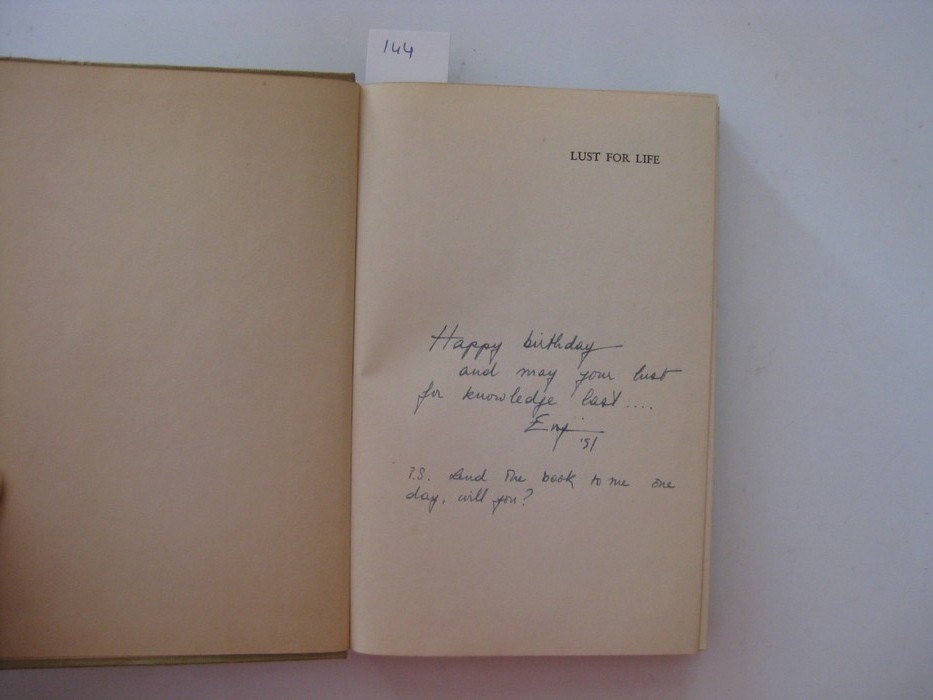 144
LUST FOR LIFE
Happy birthday
and may your lust
for knowledge last....
'51
P.S. Lend the book to me one
day, will you?